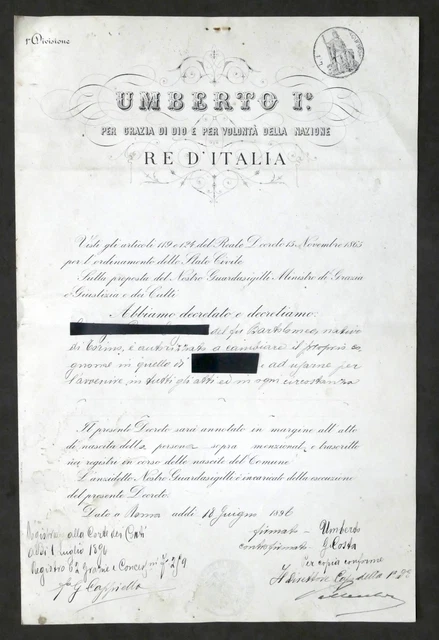 1ª Divisione
UMBERTO Iº.
PER GRAZIA DI DIO E PER VOLONTÀ DELLA NAZIONE
RE D'ITALIA
Visti gli articoli 119 e 124 del Reale Decreto 15 Novembre 1865
per l'ordinamento dello Stato Civile
Sulla proposta del Nostro Guardasigilli Ministro di Grazia
e Giustizia e dei Culti
Abbiamo decretato e decretiamo:
del fu Bartolomeo, nativo
di Torino, è autorizzato a cambiare il proprio co-
gnome in quello di e ad usarne per
l'avvenire, in tutti gli atti ed in ogni circostanza
Il presente Decreto sarà annotato in margine all'atto
di nascita della persona sopra menzionata e trascritto
nei registri in corso delle nascite del Comune
L'anzidetto Nostro Guardasigilli è incaricato della esecuzione
del presente Decreto.
Dato a Roma addì 18 Giugno 1896
firmato Umberto
controfirmato G. Costa
Per copia conforme
Il Direttore Capo della 1ª
Registrato alla Corte dei Conti
addì 1 Luglio 1896
Registro
G Cappiello